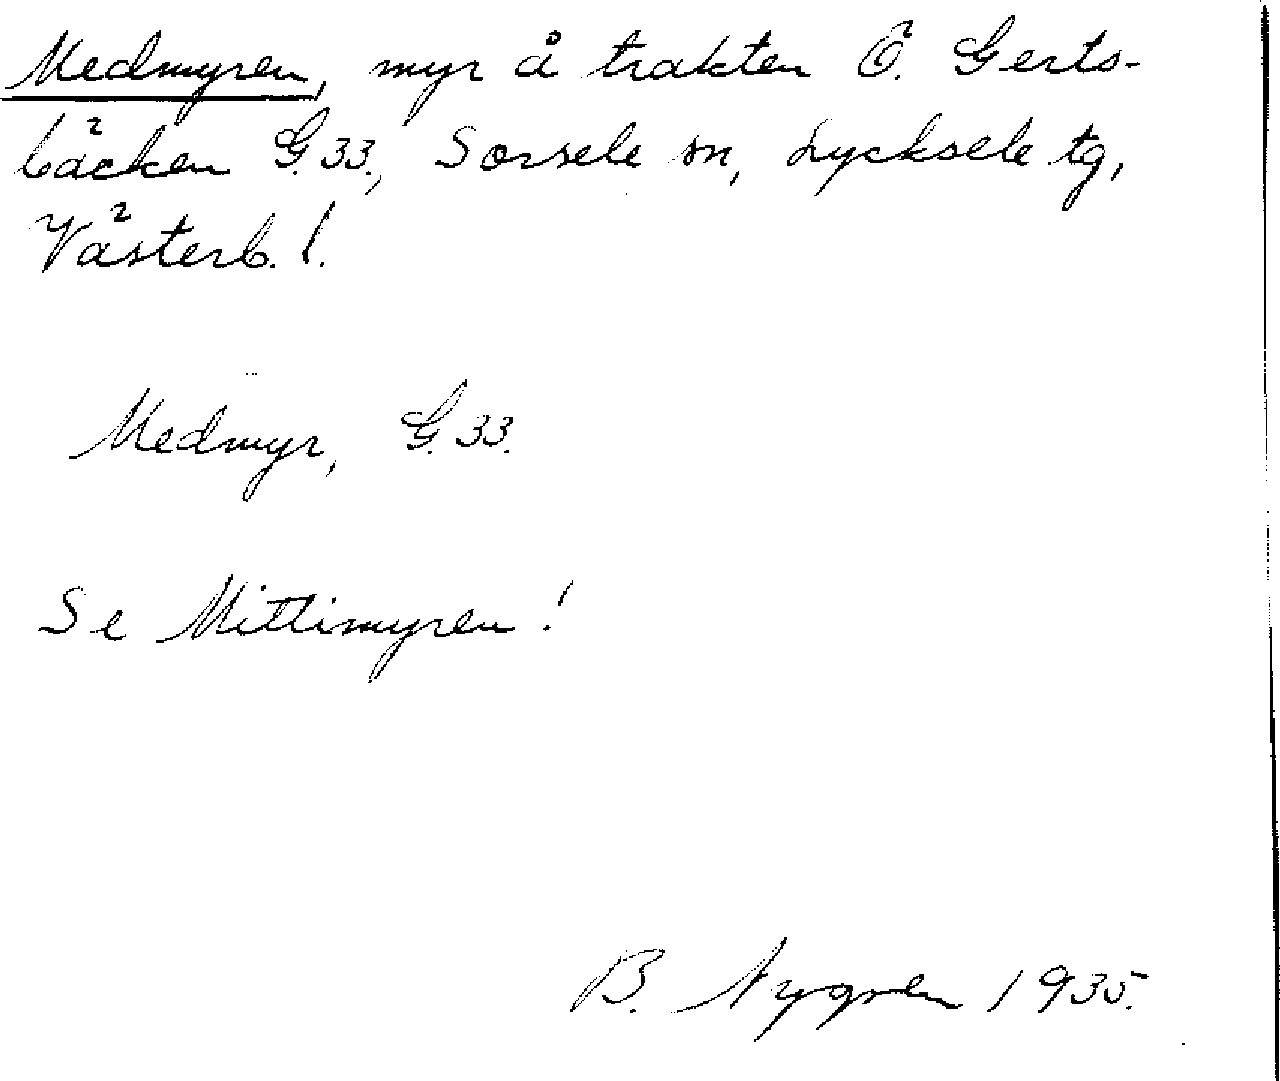 Medmyren, myr å trakten Ö. Gerts-
bäcken G.33., Sorsele sn, Lycksele tg,
Västerb. l.
Medmyr, G.33.
Se Mittimyren!
B. Nygren 1935.